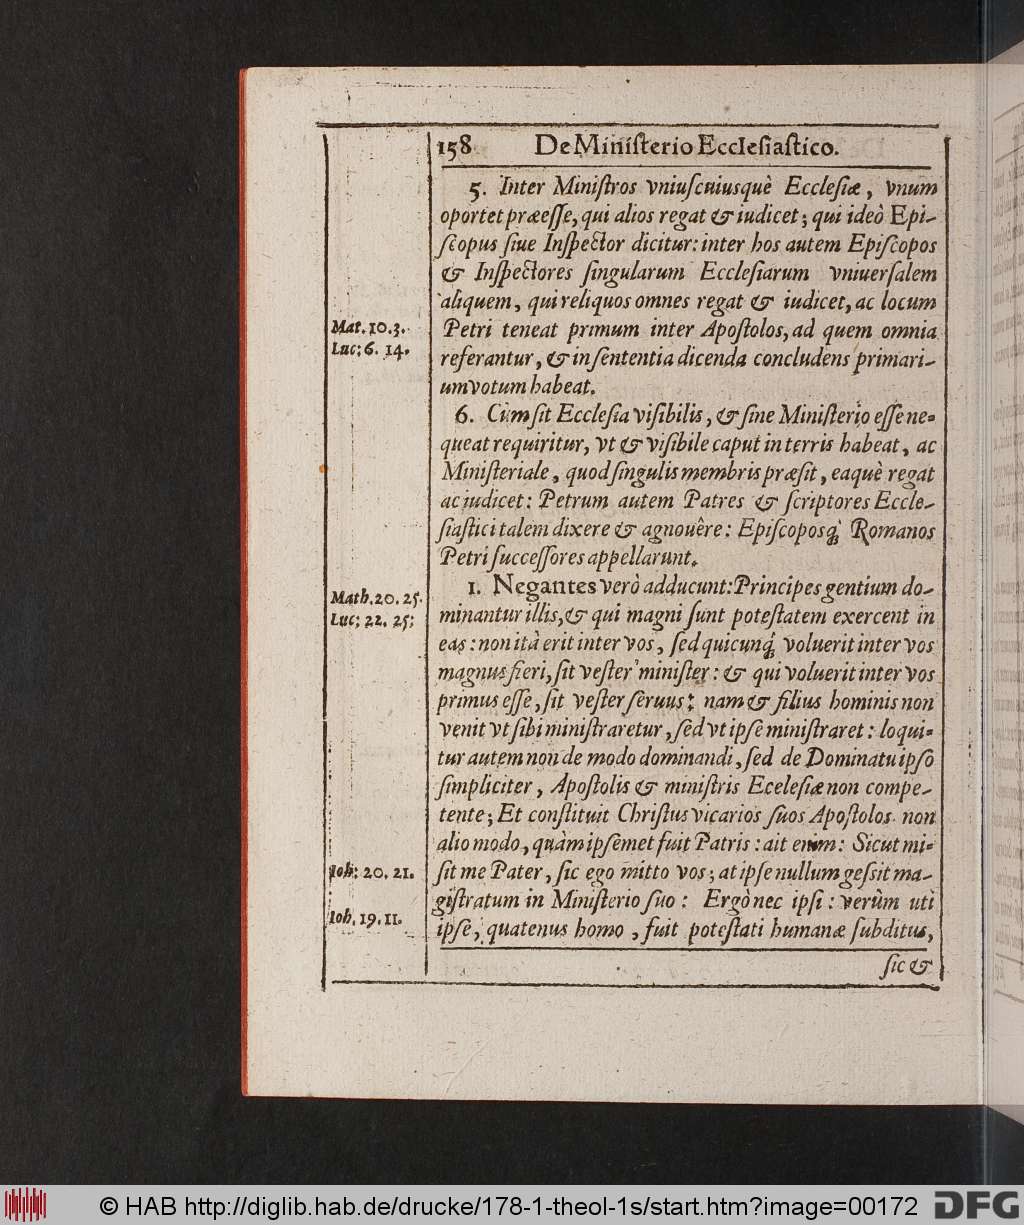 158 De Ministerio EccIesiastico.
5. Inter Ministros vniuscuiusquè Ecclesiæ, vnum
oportet præesse, qui alios regat & iudicet; qui ideò Epi-
scopus siue Inspector dicitur: inter hos autem Episcopos
& Inspectores singularum Ecclesiarum vniuersalem
aliquem, qui reliquos omnes regat & iudicet, ac locum
Mat. 10. 3.
Luc; 6. 14.
Petri teneat primum inter Apostolos, ad quem omnia
referantur, & in sententia dicenda concludens primari-
um votum habeat.
6. Cùm sit Ecclesia visibilis, & sine Ministerio esse ne-
queat requiritur, vt & visibile caput in terris habeat, ac
Ministeriale, quod singulis membris præsit, eaquè regat
ac iudicet: Petrum autem Patres & scriptores Eccle-
siastici talem dixere & agnouêre: Episcoposq́; Romanos
Petri successores appellarunt.
Math. 20. 25.
Luc; 22. 25;
1. Negantes verò adducunt: Principes gentium do-
minantur illis, & qui magni sunt potestatem exercent in
eas: non ità erit inter vos, sed quicunq́; voluerit inter vos
magnus fieri, sit vester minister: & qui voluerit inter vos
primus esse, sit vester seruus: nam & filius hominis non
venit vt sibi ministraretur, sed vt ipse ministraret: loqui-
tur autem non de modo dominandi, sed de Dominatu ipso
simpliciter, Apostolis & ministris Ecelesiæ non compe-
tente; Et constituit Christus vicarios suos Apostolos non
alio modo, quàm ipsemet fuit Patris: ait enim: Sicut mi-
Ioh: 20. 21.
sit me Pater, sic ego mitto vos; at ipse nullum gessit ma-
gistratum in Ministerio suo: Ergò nec ipsi: verùm uti
Ioh. 19. 11.
ipse, quatenus homo, fuit potestati humanæ subditus,
sic &
© HAB http://diglib.hab.de/drucke/178-1-theol-1s/start.htm?image=00172
DFG